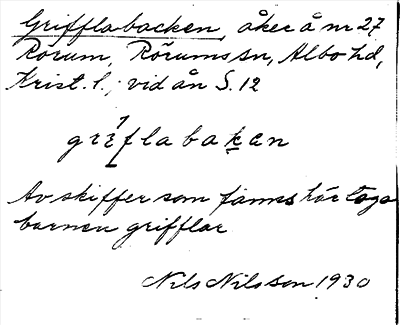 Grifflabacken, åker å nr 27
Rörum, Rörums sn, Albo hd,
Krist. l., vid ån S. 12
grɛflabakan
Av skiffer som fanns här togo
barnen grifflar
Nils Nilsson 1930